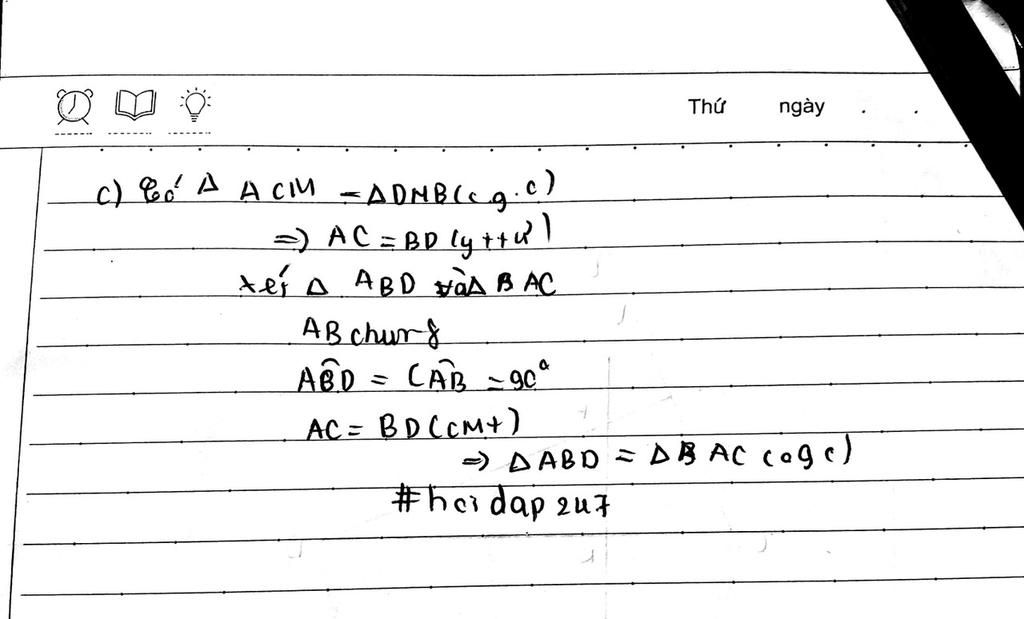 Thứ ngày . .
c) Có Δ ACM = ΔDMB (c.g.c)
=) AC = BD (y++ư)
xét Δ ABD và Δ BAC
AB chung
ABD = CAB = 90°
AC = BD (CM+)
=) Δ ABD = Δ BAC (cgc)
#hoidap247